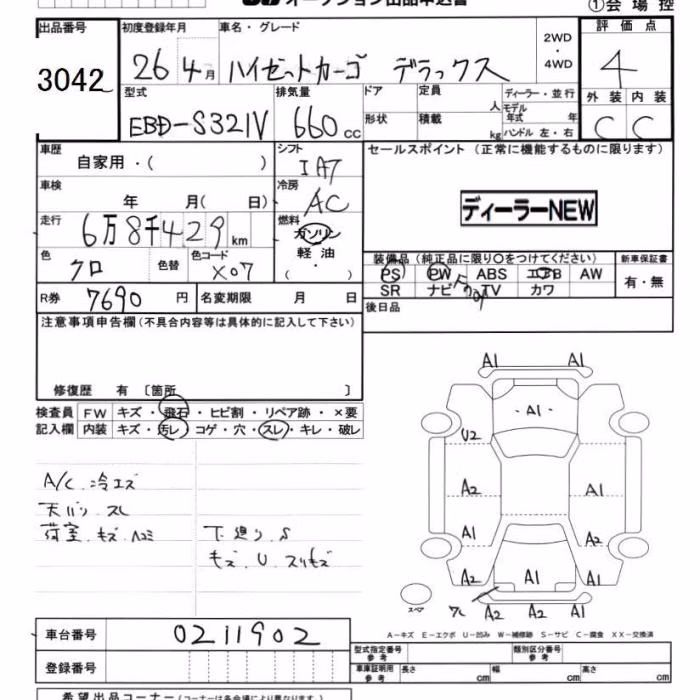 オークション出品申込書
①会場控
出品番号 3042
初度登録年月 26 4月
車名・グレード ハイゼットカーゴ デラックス
2WD・4WD
評価点 4
外装 C 内装 C
型式 EBD-S321V
排気量 660cc
ドア
定員 人
ディーラー・並行
形状
積載 kg
モデル年式 年
ハンドル 左・右
車歴 自家用・( )
シフト IA7
セールスポイント (正常に機能するものに限ります)
ディーラーNEW
車検 年 月( 日)
冷房 AC
走行 6万8千429km
燃料 ガソリン
軽油
( ・ )
色 クロ
色替
色コード X07
装備品 (純正品に限り○をつけてください)
新車保証書
PS PW ABS エアB AW
有・無
SR ナビ TV カワ
R券 7690円
名変期限 月 日
後日品
注意事項申告欄(不具合内容等は具体的に記入して下さい)
修復歴 有 〔箇所 〕
検査員記入欄
FW キズ・飛石・ヒビ割・リペア跡・×要
内装 キズ・汚レ・コゲ・穴・スレ・キレ・破レ
A/C.冷エズ
天バリ.スレ
荷室.キズ.ヘコミ
下廻り.S
キズ.U.スリキズ
A1 A1
A1
U2
A2 A1
A1 A2
A2 A1 A2
スペア
A2 A2 A1
A-キズ E-エクボ U-凹み W-補修跡 S-サビ C-腐食 XX-交換済
車台番号 0211902
登録番号
型式指定番号 参考
類別区分番号 参考
車庫証明用 参考 長さ cm 幅 cm 高さ cm
希望出品コーナー(コーナーは各会場により異なります)